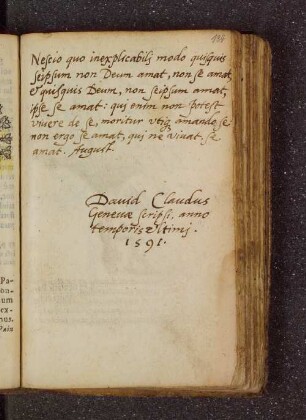 Nescio quo inexplicabili modo quisquis
seipsum non Deum amat, non se amat,
& quisquis Deum, non seipsum amat,
ipse se amat: qui enim non potest
vivere de se, moritur utiq amando se
non ergo se amat, qui ne vivat se
amat. August.
David Claudus
Genevæ scripsi, anno
temporis ultimi.
1591.
Pa-
on-
um
ex-
nus.